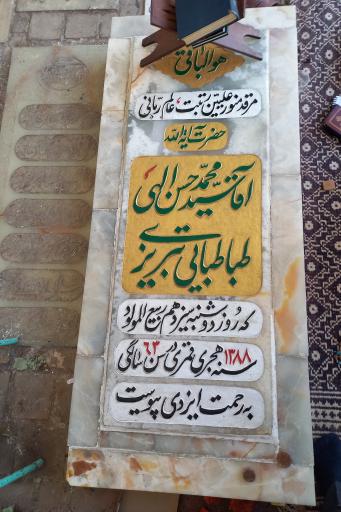 هوالباقی
مرقد منور علیین رتبت، عالم ربانی
حضرت آیة الله
آقا سید محمد حسن الهی
طباطبایی تبریزی
که روز دوشنبه سیزدهم ربیع المولود
سنه ۱۳۸۸ هجری قمری در سن ۶۳ سالگی
به رحمت ایزدی پیوست